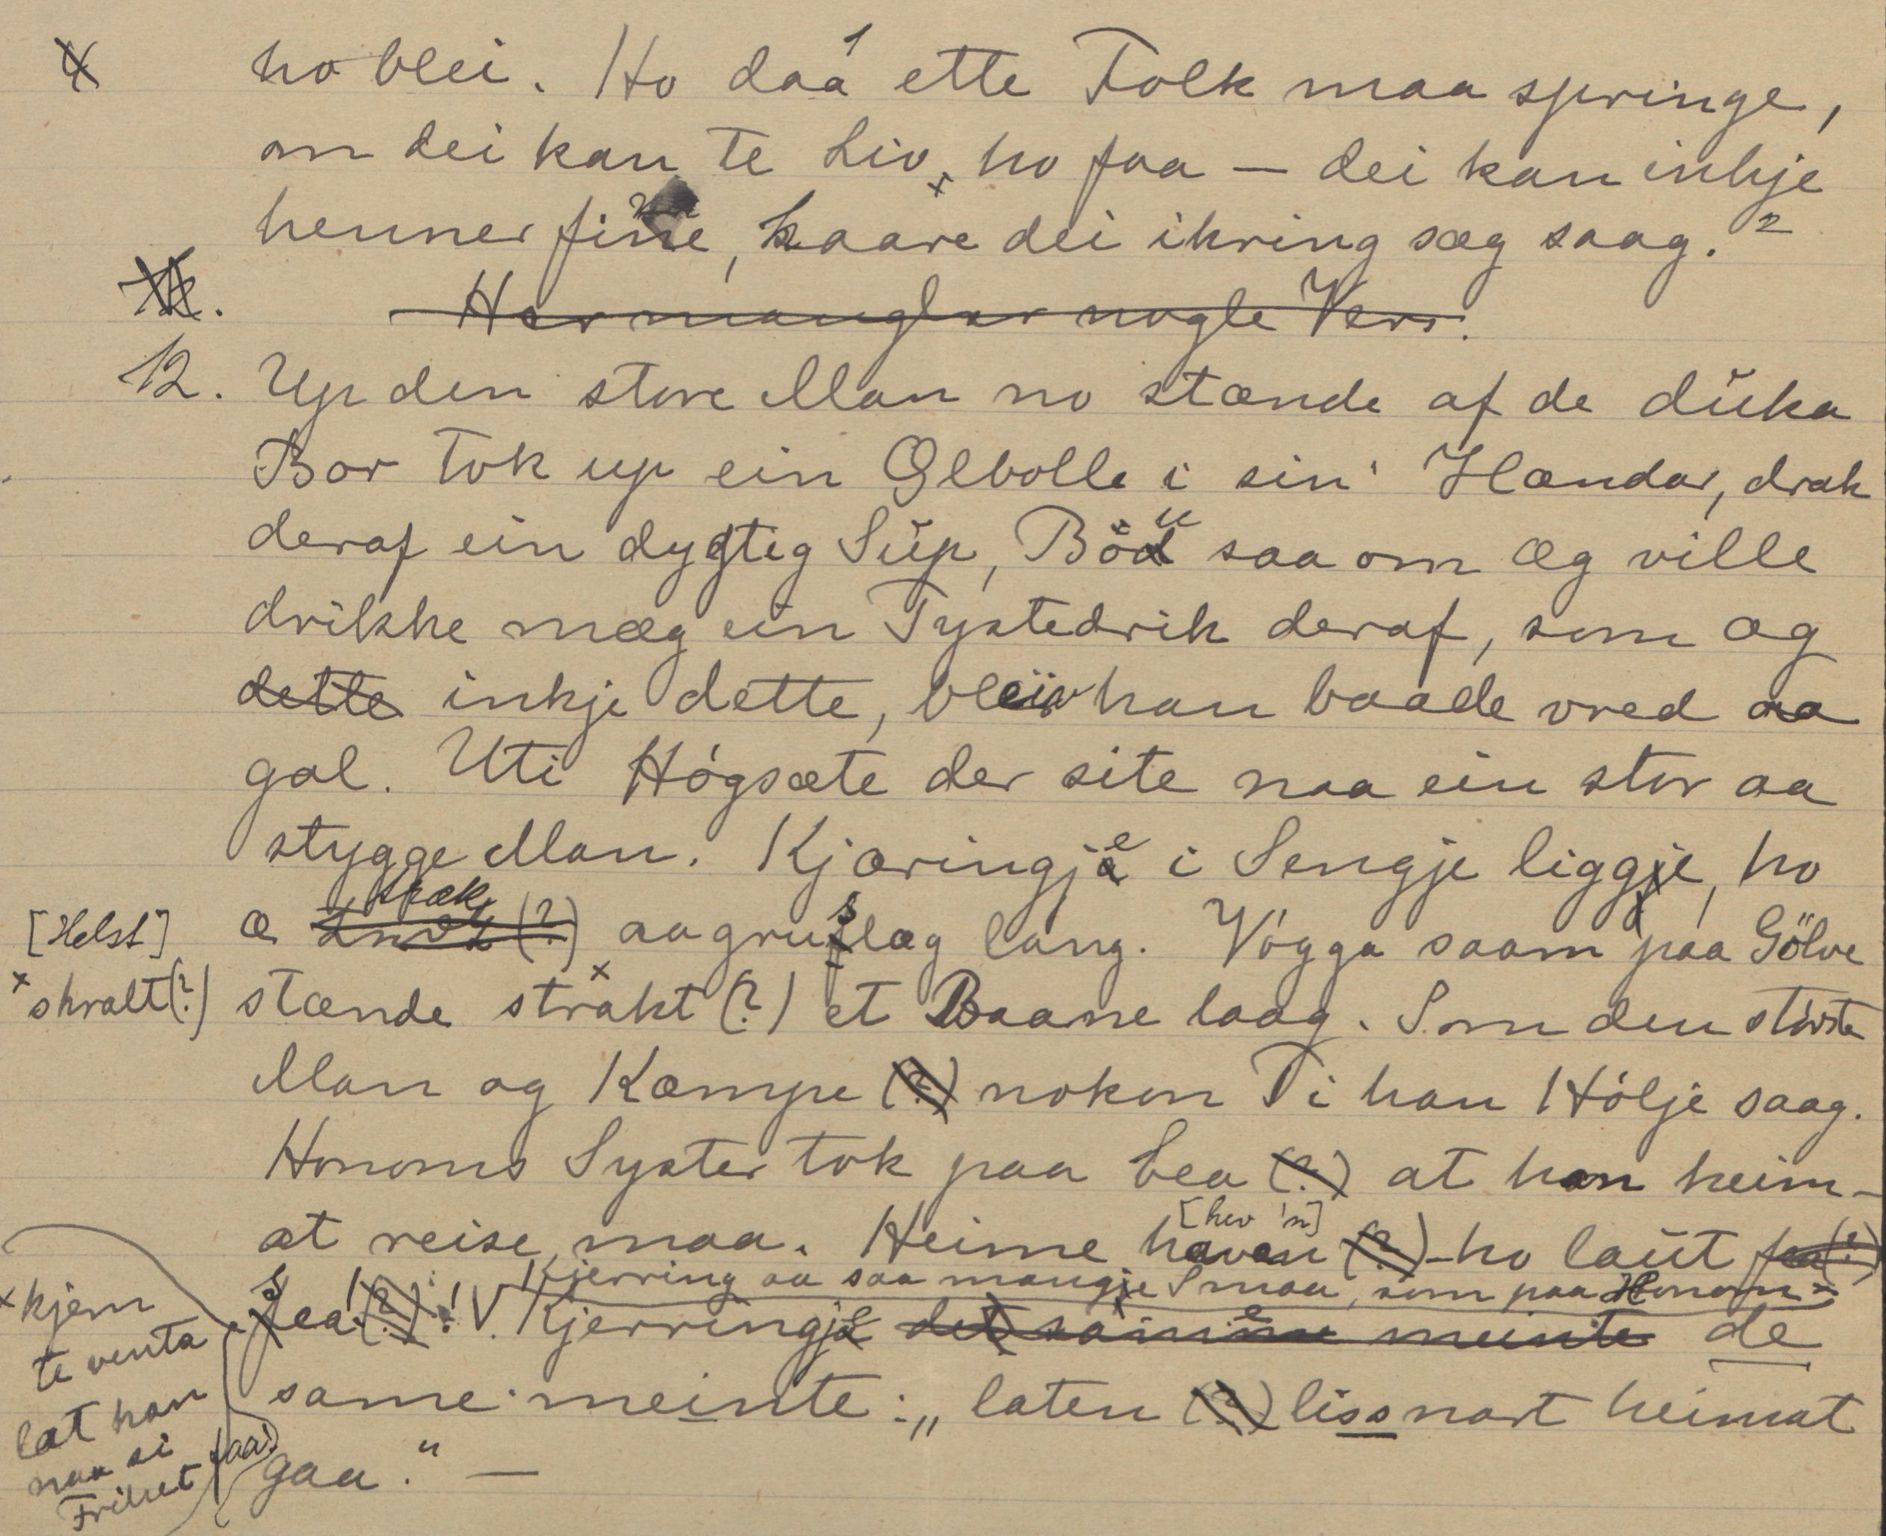 ho blei. Ho daa ette Folk maa springe,
om dei kan te Liv ho faa — dei kan inkje
henner fine, kaare dei ikring sæg saag. 2
Her manglar nogle Vers.
12. Up den store Man no stænde af de dŭka
Bor tok up ein Ølbolle i sin' Hændar, drak
deraf ein dygtig Sŭp, Böd saa om æg ville
drikke mæg ein Tystedrik deraf, som æg
dette inkje dette, bleiv han baade vred aa
gal. Uti Högsæte der site naa ein stor aa
stygge Man. Kjæringje i Sengje liggje, ho
spæk
[Helst] æ (?) aa gruslæg lang. Vögga saam paa Gölve
x skralt(?) stænde strakt (?) et Baane laag. Som den störste
Man og Kæmpe (?) nokon Ti han Hölje saag.
Honoms Syster tok paa Lea (?) at han heim-
[hev 'n]
at reise maa. Heime haven (?) - ho laŭt faa (?)
Kjerring aa saa mangje Smaa, som paa Honom
x kjem Lea! (?)! V. Kjerringje det samme meinte de
te venta
same meinte: „laten (?) lissnart heimat
lat han
naa si
Frihet faa!
gaa." —